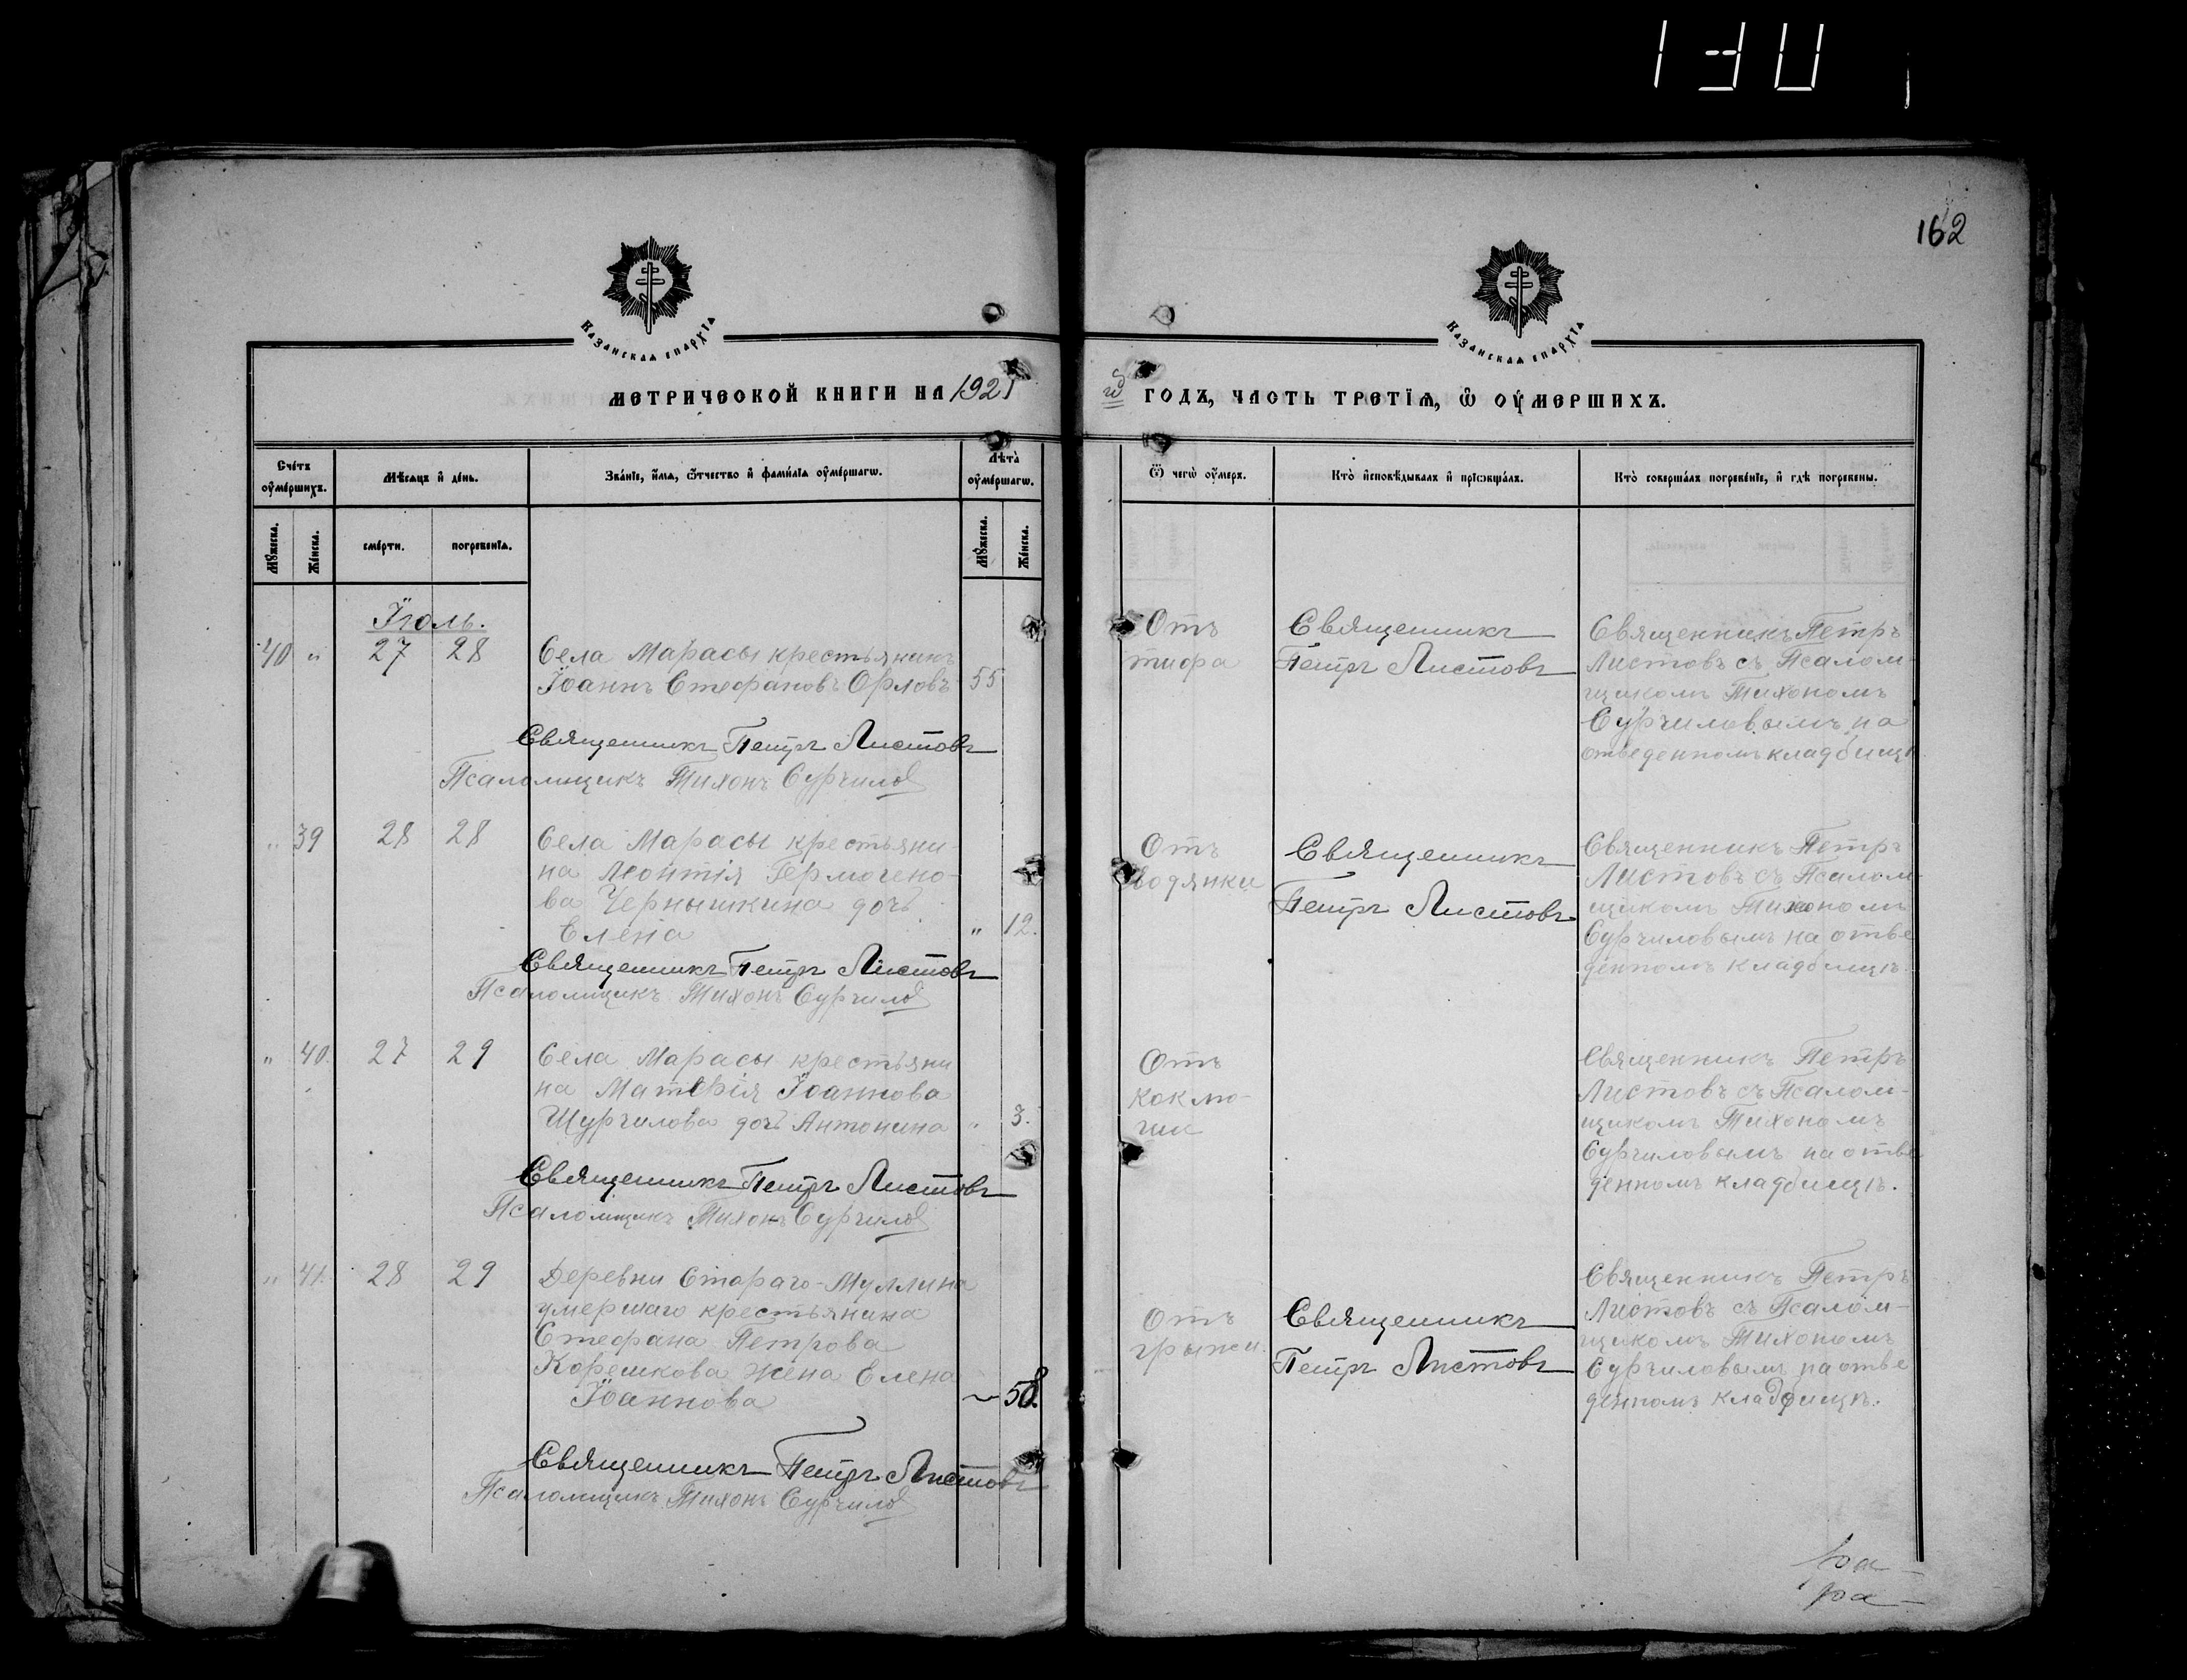 130
162
КАЗАНСКАЯ ЕПАРХІЯ
КАЗАНСКАЯ ЕПАРХІЯ
МЕТРИЧЕСКОЙ КНИГИ НА 1921 го ГОДЪ, ЧАСТЬ ТРЕТІѦ, Ѽ ОУМЕРШИХЪ.
Счетъ оумершихъ.
Мѣсяцъ и день.
Званіе, имя, отчество и фамилія оумершагѡ.
Лѣта оумершагѡ.
Ѿ чегѡ оумеръ.
Кто исповѣдывалъ и пріобщалъ.
Кто совершалъ погребеніе, и гдѣ погребены.
Мужеска.
Женска.
смерти.
погребенія.
Мужеска.
Женска.
Іюль.
40 " 27 28
Села Марасы крестьянинъ
Іоаннъ Стефановъ Орловъ 55
Священникъ Петръ Листовъ
Псаломщикъ Тихонъ Сурчилов
Отъ
тифа
Священникъ
Петръ Листовъ
Священникъ Петръ
Листовъ съ Псалом-
щикомъ Тихономъ
Сурчиловымъ на
отведенномъ кладбищѣ
" 39 28 28
Села Марасы крестьяни-
на Леонтія Гермогено-
ва Чернышкина дочь
Елена " 12.
Священникъ Петръ Листовъ
Псаломщикъ Тихонъ Сурчилов
Отъ
водянки
Священникъ
Петръ Листовъ
Священникъ Петръ
Листовъ съ Псалом-
щикомъ Тихономъ
Сурчиловымъ на отве
денномъ кладбищѣ.
" 40. 27 29
Села Марасы крестьяни
на Матѳія Іоаннова
Шурчилова дочь Антонина " 3.
Священникъ Петръ Листовъ
Псаломщикъ Тихонъ Сурчилов
Отъ
коклю-
ша
Священникъ Петръ
Листовъ съ Псалом-
щикомъ Тихономъ
Сурчиловымъ на отве
денномъ кладбищѣ.
" 41. 28 29
Деревни Стараго-Муллина
умершаго крестьянина
Стефана Петрова
Корешкова жена Елена
Іоаннова 58.
Священникъ Петръ Листовъ
Псаломщикъ Тихонъ Сурчилов
Отъ
грыжи.
Священникъ
Петръ Листовъ
Священникъ Петръ
Листовъ съ Псалом-
щикомъ Тихономъ
Сурчиловымъ на отве
денномъ кладбищѣ.